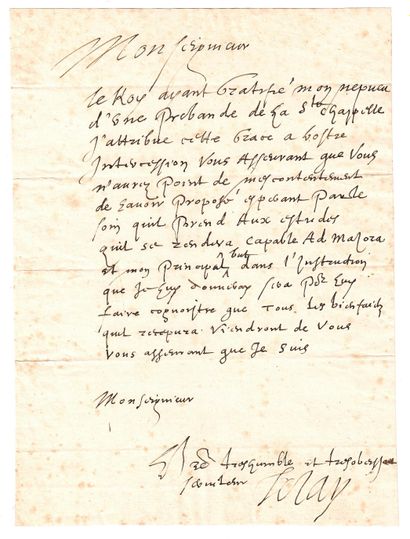 Monseigneur
le Roy ayant Gratifié mon nepveu
d'une Prebande de la Ste Chappelle
J'attribue cette Grace a vostre
Intercession Vous Asseurant que Vous
n'aurez Point de mescontentement
de Lavoir Proposé esperant Par le
soin quil Prend Aux estudes
quil se rendera Capable Ad Majora
et mon Principal but dans l'Instruction
que Je luy donneray sera Pour luy
faire cognoistre que Tous les bienfaicts
quil recepvra Viendront de Vous
Vous asseurant que Je suis
Monseigneur
tres humble et tres obeissant
serviteur